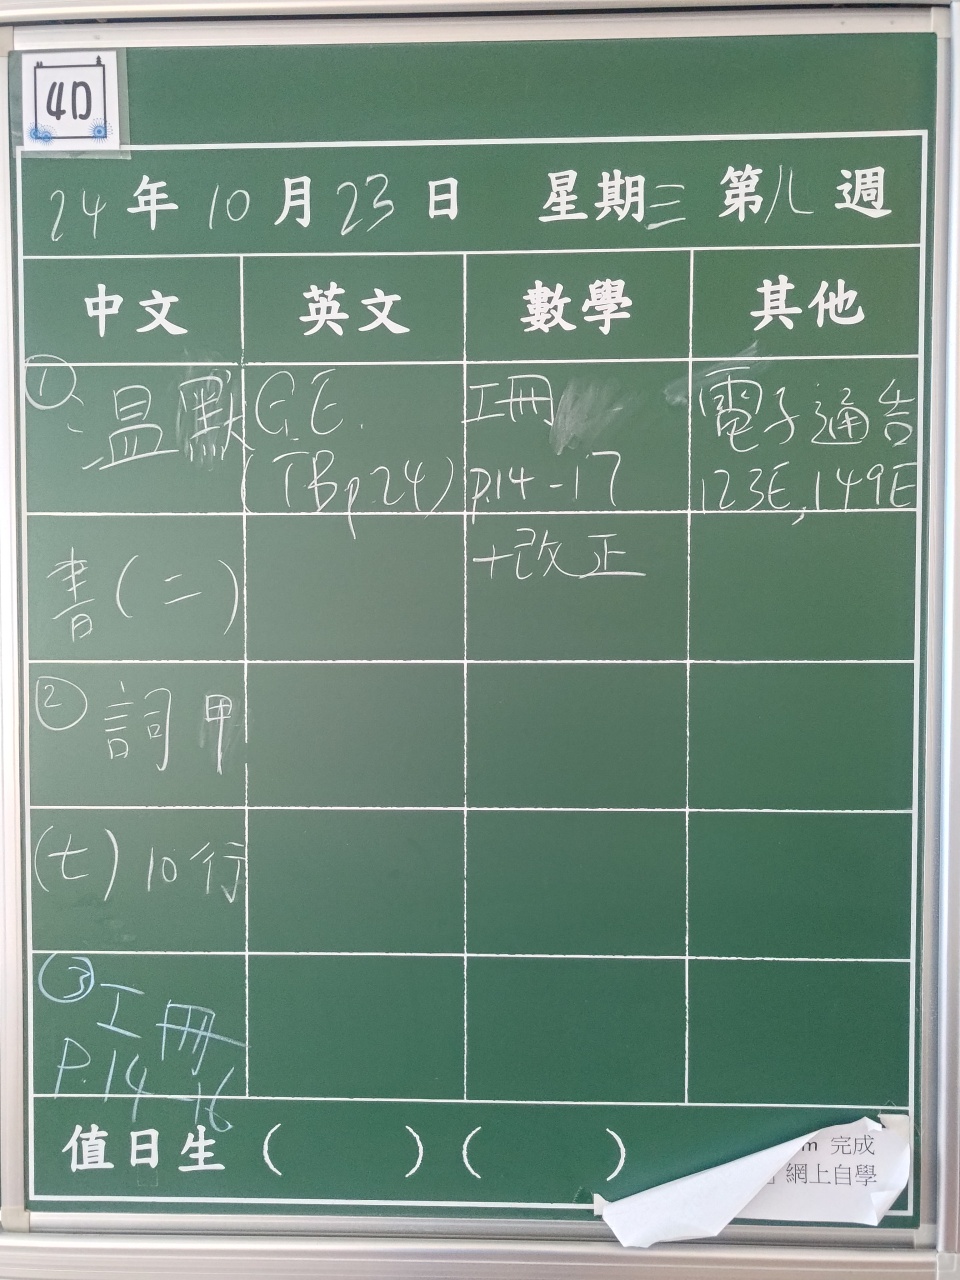 4D
24年10月23日 星期三 第八週
中文 英文 數學 其他
① 溫默
書(二)
② 詞甲
(七) 10行
③ 工冊
P.14-16
G.E.
(TB p.24)
工冊
p.14-17
+改正
電子通告
123E, 149E
值日生 ( ) ( )
m 完成
網上自學